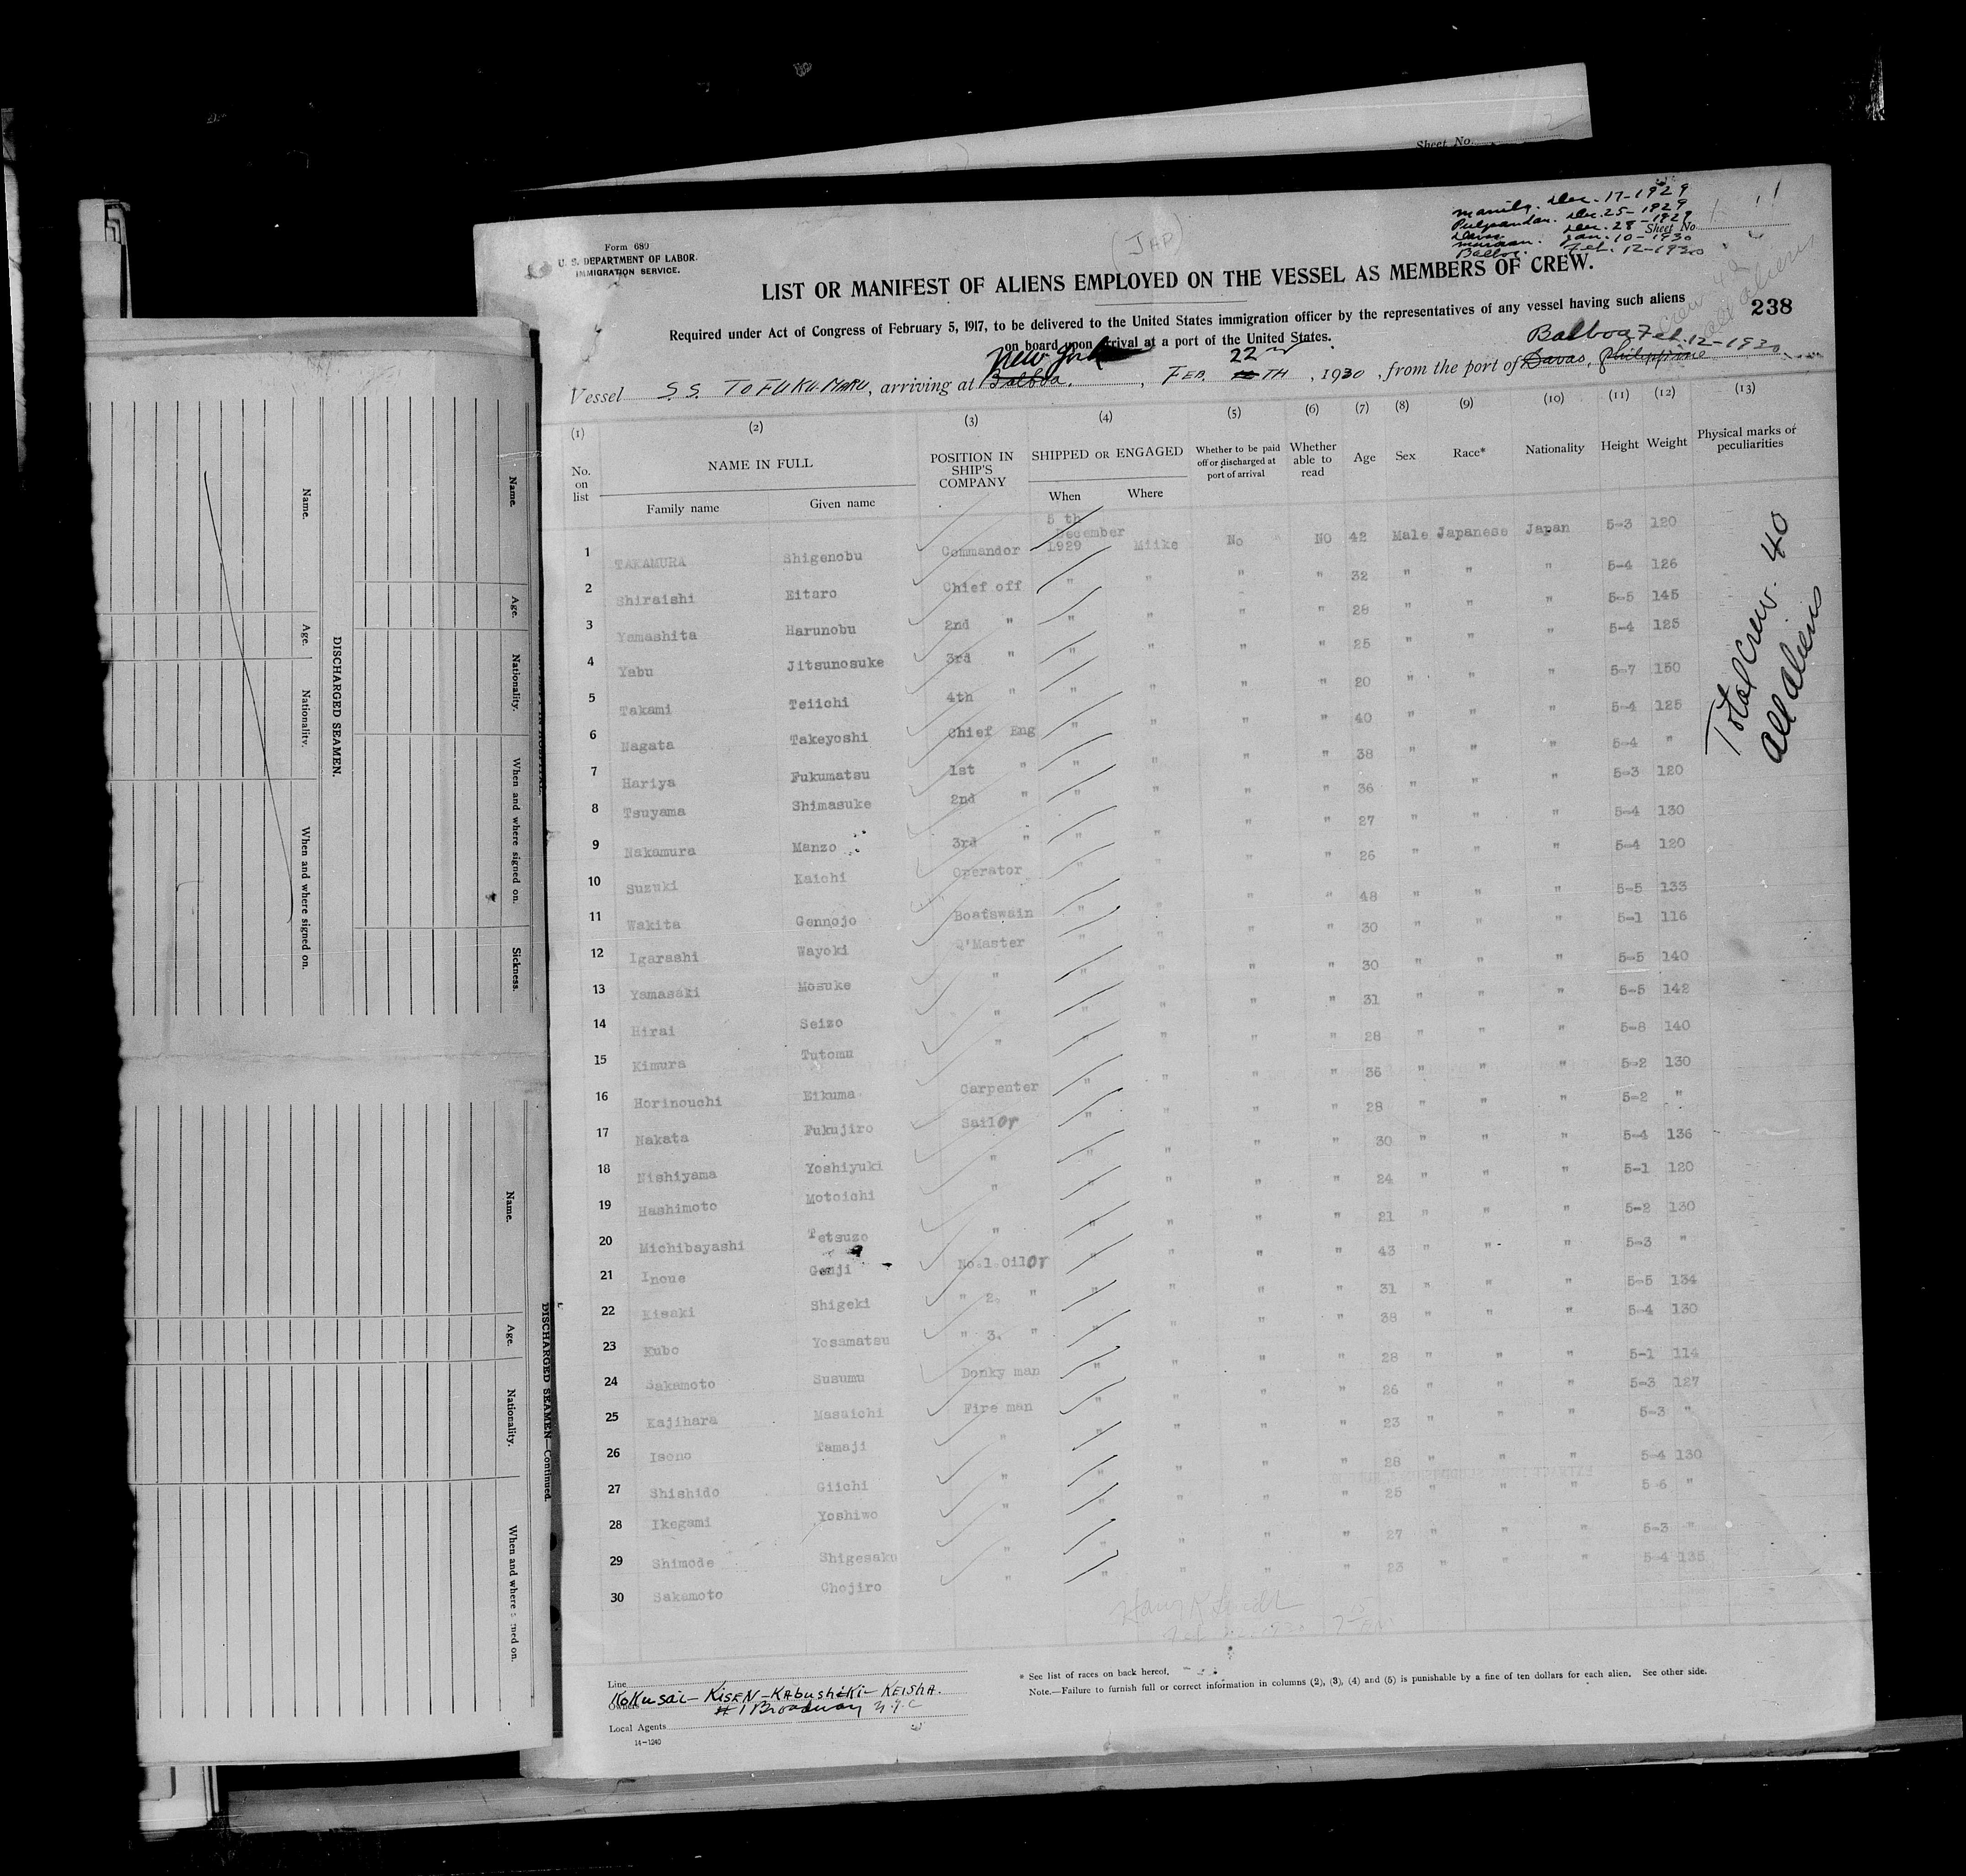 Sheet No.
Manila. Dec. 17-1929
Dec. 25-1929
Davao. Dec. 28-1929
Sheet No.
Jan. 10-1930
Balboa. Feb. 12-1930
(JAP)
Form 689
U. S. DEPARTMENT OF LABOR.
IMMIGRATION SERVICE.
LIST OR MANIFEST OF ALIENS EMPLOYED ON THE VESSEL AS MEMBERS OF CREW.
238
Required under Act of Congress of February 5, 1917, to be delivered to the United States immigration officer by the representatives of any vessel having such aliens
on board upon arrival at a port of the United States.
New York 22 Balboa Feb. 12-1930
Vessel S.S. TOFUKU-MARU, arriving at Balboa., FEB. TH, 1930, from the port of Davao, Philippine
(1) (2) (3) (4) (5) (6) (7) (8) (9) (10) (11) (12) (13)
No. on list NAME IN FULL POSITION IN SHIP'S COMPANY SHIPPED OR ENGAGED Whether to be paid off or discharged at port of arrival Whether able to read Age Sex Race* Nationality Height Weight Physical marks or peculiarities
Family name Given name When Where
1 TAKAMURA Shigenobu Commandor 5 th December 1929 Miike No NO 42 Male Japanese Japan 5-3 120
2 Shiraishi Eitaro Chief off " " " " 32 " " " 5-4 126
3 Yamashita Harunobu 2nd " " " " " 28 " " " 5-5 145
4 Yabu Jitsunosuke 3rd " " " " " 25 " " " 5-4 125
5 Takami Teiichi 4th " " " " " 20 " " " 5-7 150
6 Nagata Takeyoshi Chief Eng " " " " 40 " " " 5-4 125
7 Hariya Fukumatsu 1st " " " " " 38 " " " 5-4 "
8 Tsuyama Shimasuke 2nd " " " " " 36 " " " 5-3 120
9 Nakamura Manzo 3rd " " " " " 27 " " " 5-4 130
10 Suzuki Kaichi Operator " " " " 26 " " " 5-4 120
11 Wakita Gennojo Boatswain " " " " 48 " " " 5-5 133
12 Igarashi Wayoki Q'Master " " " " 30 " " " 5-1 116
13 Yamasaki Mosuke " " " " " 30 " " " 5-5 140
14 Hirai Seizo " " " " " 31 " " " 5-5 142
15 Kimura Tutomu " " " " " 28 " " " 5-8 140
16 Horinouchi Eikuma Carpenter " " " " 36 " " " 5-2 130
17 Nakata Fukujiro Sailor " " " " 28 " " " 5-2 "
18 Nishiyama Yoshiyuki " " " " " 30 " " " 5-4 136
19 Hashimoto Motoichi " " " " " 24 " " " 5-1 120
20 Michibayashi Tetsuzo " " " " " 21 " " " 5-2 130
21 Inoue Genji No.1 Oilor " " " " 43 " " " 5-3 "
22 Kisaki Shigeki " 2. " " " " " 31 " " " 5-5 134
23 Kubo Yosamatsu " 3. " " " " " 38 " " " 5-4 130
24 Sakamoto Susumu Donky man " " " " 28 " " " 5-1 114
25 Kajihara Masaichi Fire man " " " " 26 " " " 5-3 127
26 Isono Tamaji " " " " " 23 " " " 5-3 "
27 Shishido Giichi " " " " " 28 " " " 5-4 130
28 Ikegami Yoshiwo " " " " " 25 " " " 5-6 "
29 Shimode Shigesaku " " " " " 27 " " " 5-3 "
30 Sakamoto Chojiro " " " " " 23 " " " 5-4 135
Total crew. 40
all aliens
Line
KOKUSAI-KISEN-KABUSHIKI-KEISHA.
Owners
# 1 Broadway N.Y.C
Local Agents
14-1240
* See list of races on back hereof.
Note.—Failure to furnish full or correct information in columns (2), (3), (4) and (5) is punishable by a fine of ten dollars for each alien. See other side.
Name. Age. Nationality. When and where signed on. Sickness.
DISCHARGED SEAMEN.
Name. Age. Nationality. When and where signed on.
DISCHARGED SEAMEN—Continued.
Name. Age. Nationality. When and where signed on.